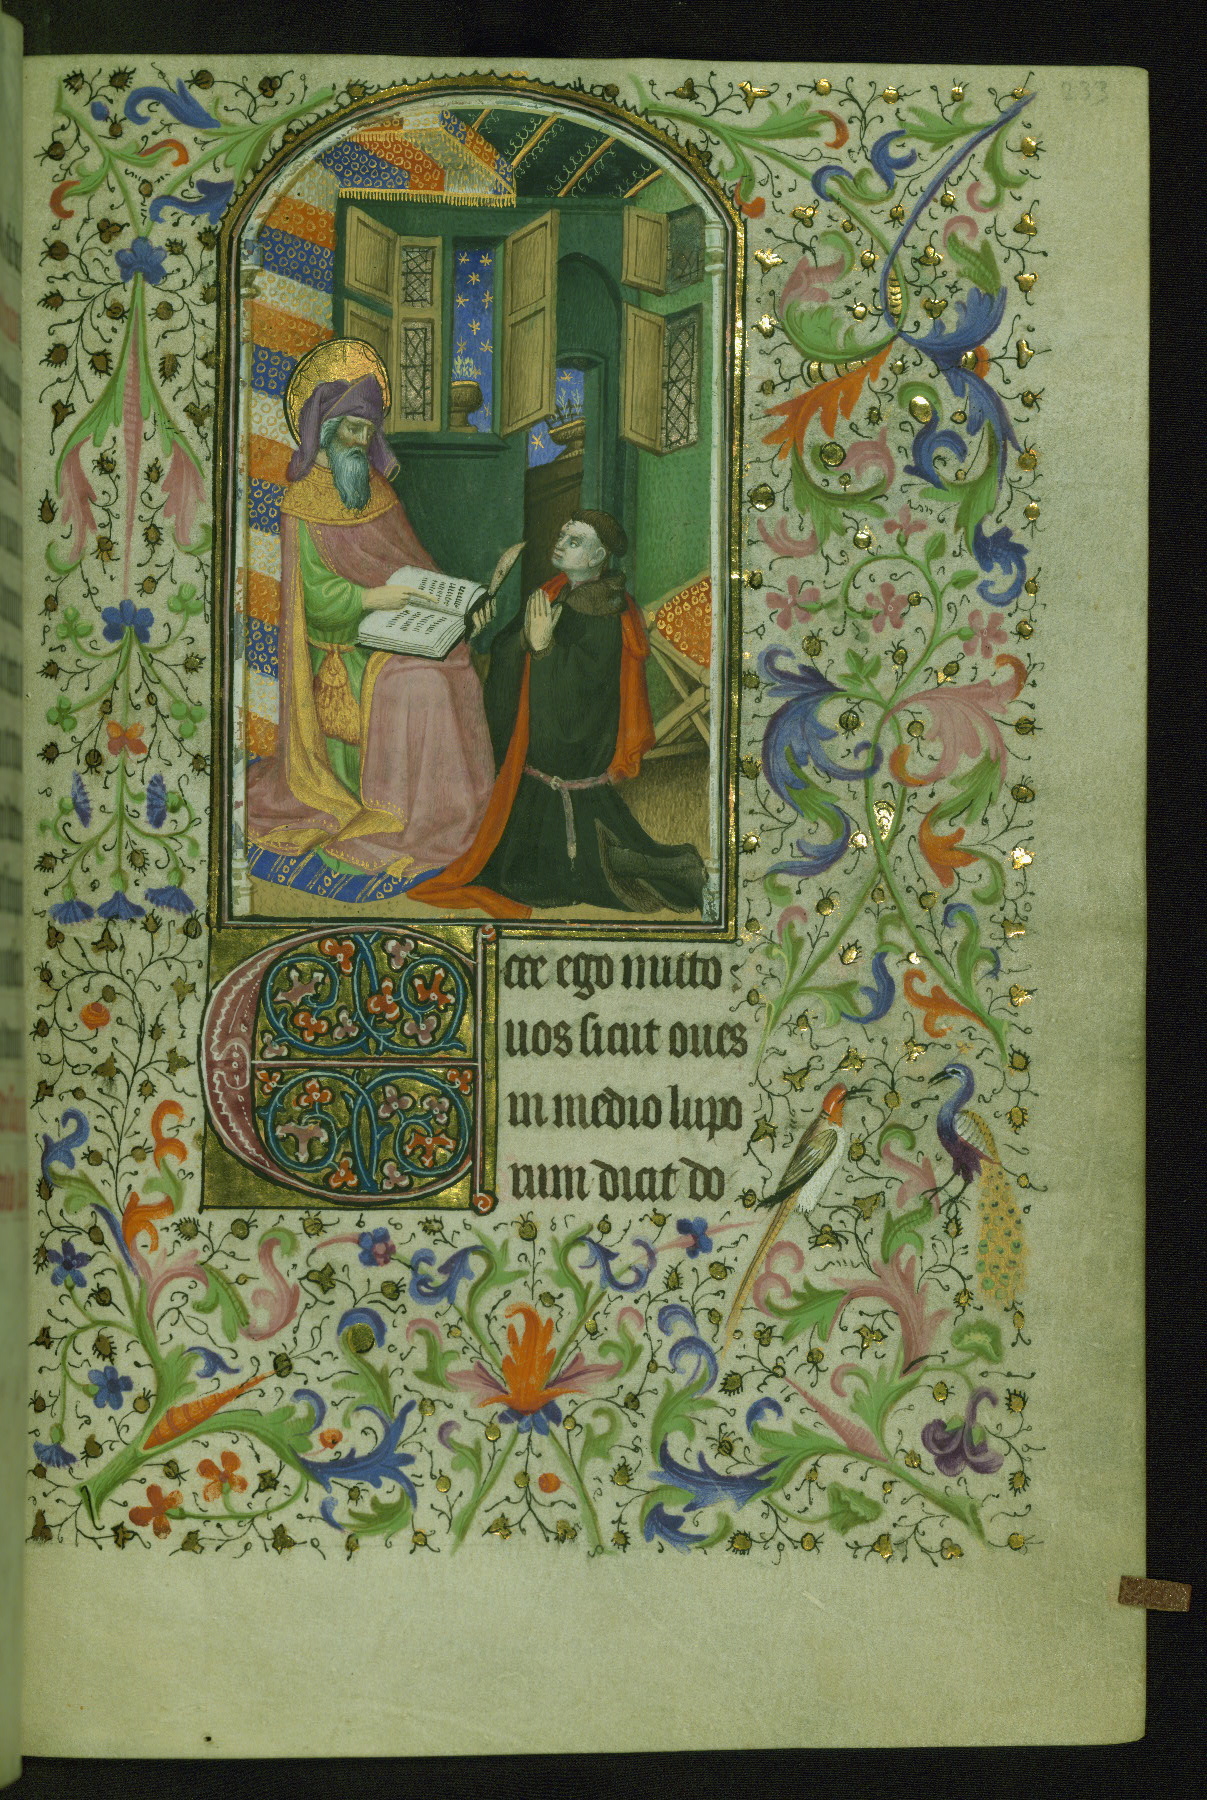 233
Ecce ego mitto
vos sicut oves
in medio lupo
rum dicit do